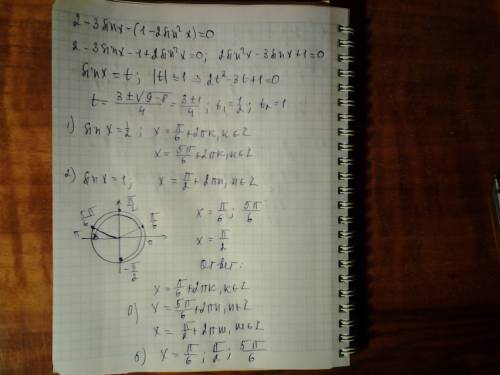 2 - 3 sin x - (1 - 2 sin² x) = 0
2 - 3 sin x - 1 + 2 sin² x = 0; 2 sin² x - 3 sin x + 1 = 0
sin x = t; |t| ≤ 1 ⇒ 2t² - 3t + 1 = 0
t = (3 ± √(9 - 8))/4 = (3 ± 1)/4; t₁ = 1/2; t₂ = 1
1) sin x = 1/2; x = π/6 + 2πk, k ∈ Z
x = 5π/6 + 2πk, k ∈ Z
2) sin x = 1; x = π/2 + 2πn, n ∈ Z
π/2
5π/6 π/6
π 0
-π/2
x = π/6; 5π/6
x = π/2
Ответ:
x = π/6 + 2πk, k ∈ Z
а) x = 5π/6 + 2πn, n ∈ Z
x = π/2 + 2πm, m ∈ Z
б) x = π/6; π/2; 5π/6